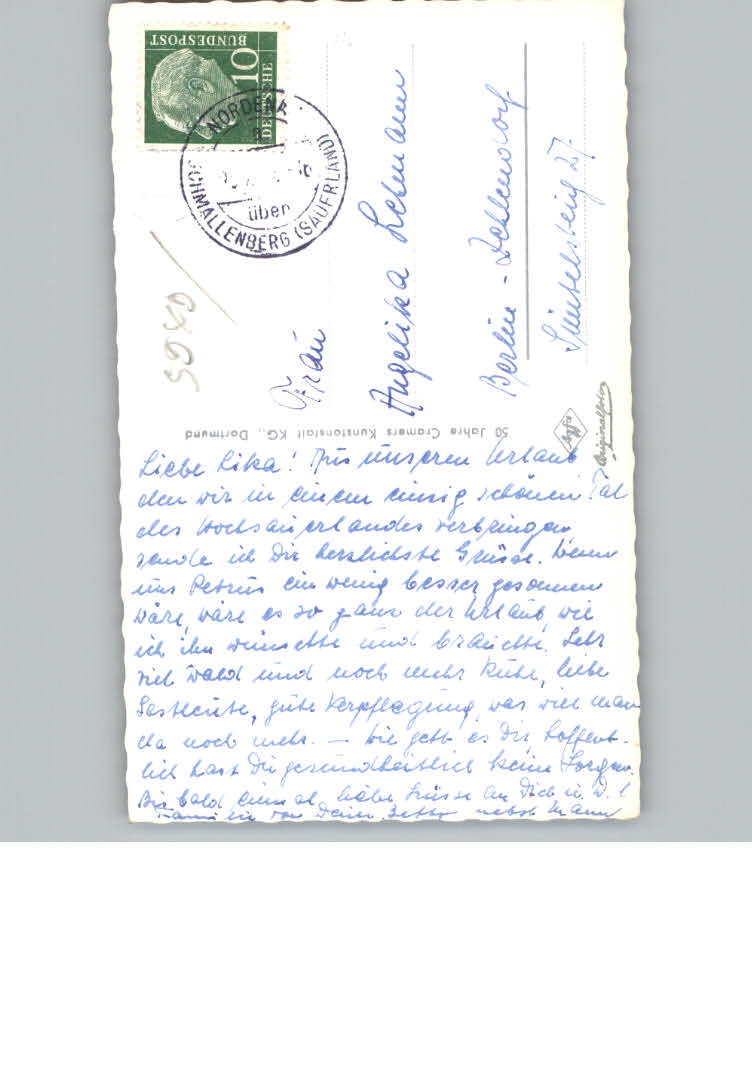 DEUTSCHE
BUNDESPOST
10
NORDENA
über
SCHMALLENBERG (SAUERLAND)
5940
Frau
Angelika Lehmann
Berlin - Zehlendorf
Süntelsteig 27
50 Jahre Cramers Kunstanstalt KG., Dortmund
Agfa
Originalfoto
Liebe Lika! Aus unseren Urlaub
den wir in einem einzig schönen Tal
des Hochsauerlandes verbringen
sende ich Dir herzlichste Grüsse. Wenn
uns Petrus ein wenig besser gesonnen
wäre, wäre es so ganz der Urlaub, wie
ich ihn wünschte und brauchte. Sehr
viel Wald und noch mehr Ruhe, liebe
Gastleute, gute Verpflegung, was will man
da noch mehr. – Wie geht es Dir, hoffent-
lich hast Du gesundheitlich keine Sorgen.
Bis bald einmal, liebe Grüsse an Dich u. D. l
Familie von Deiner nebst Mann